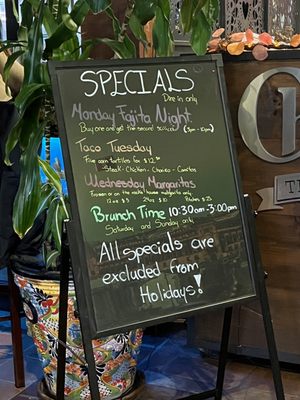 SPECIALS
Dine in only
Monday Fajita Night
Buy one and get the second 50% (5pm-10pm)
Taco Tuesday
Five corn tortillas for $12.
Steak - Chicken - Chorizo - Carnitas
Wednesday Margaritas
Frozen or on the rocks house margarita
12oz $5 24oz $10 Pitchers $25
Brunch Time 10:30am-3:00pm
Saturday and Sunday only
All specials are
excluded from
Holidays!